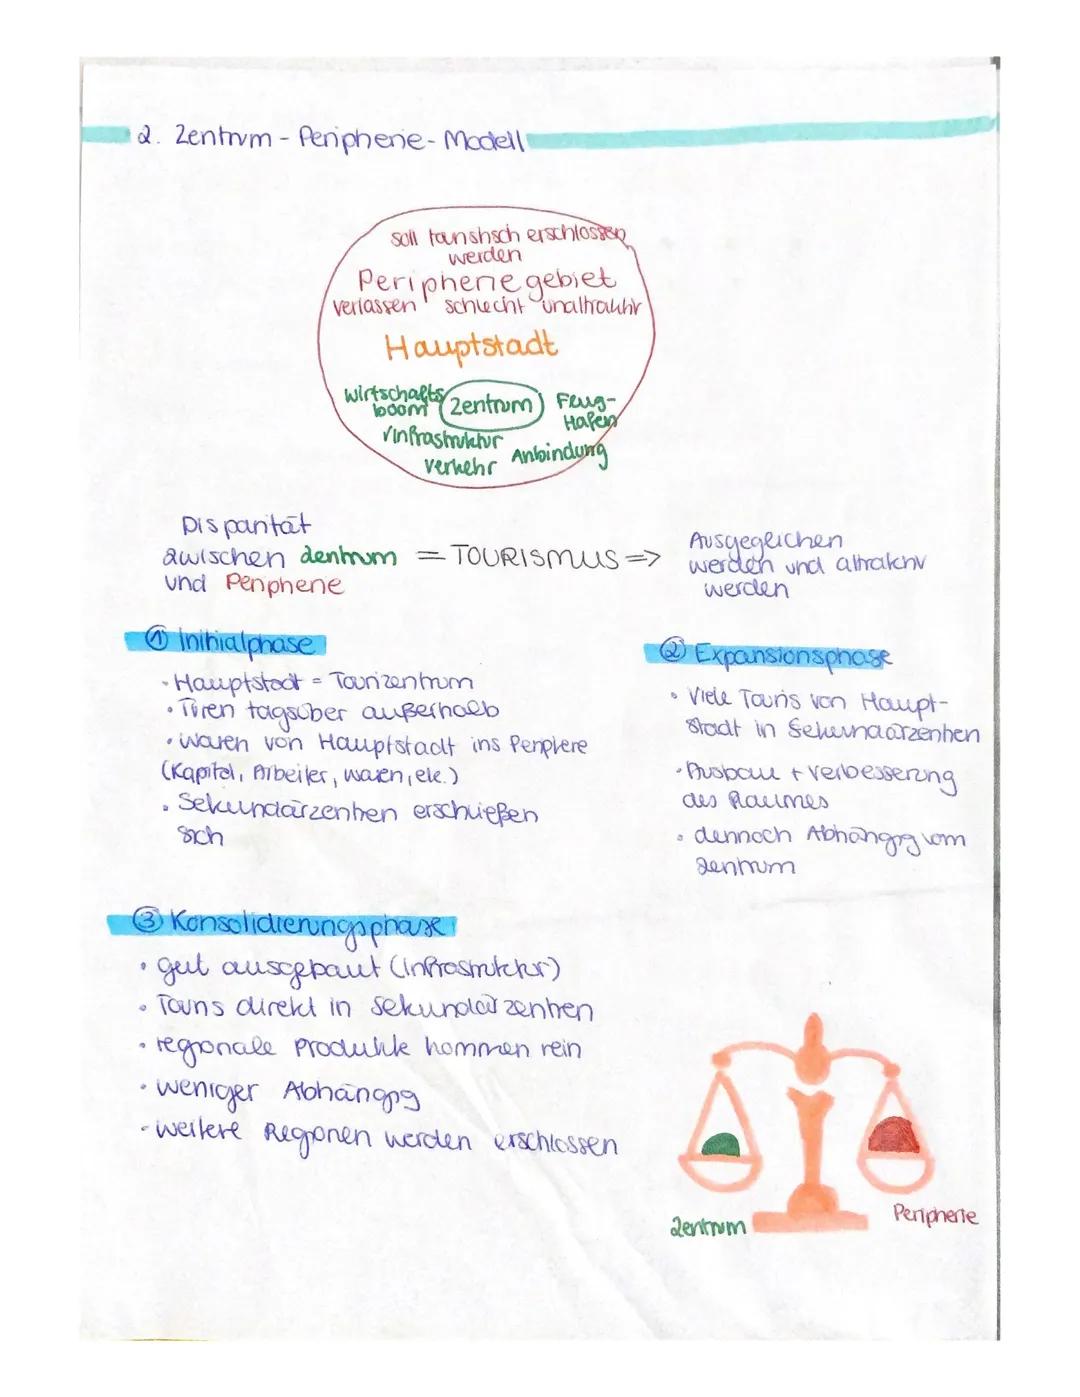 2. Zentrum - Peripherie - Modell
soll touristisch erschlossen
werden
Peripheriegebiet
verlassen schlecht unattraktiv
Hauptstadt
wirtschafts
boom
Zentrum
Flug-
Hafen
Infrastruktur
verkehr Anbindung
Disparität
zwischen Zentrum = TOURISMUS =>
und Peripherie
Ausgeglichen
werden und attraktiv
werden
① Initialphase
- Hauptstadt = Tourizentrum
• Türen tagsüber außerhalb
• Waren von Hauptstadt ins Periphere
(Kapital, Arbeiter, waren, etc.)
• Sekundärzentren erschließen
sich
② Expansionsphase
• Viele Touris von Haupt-
stadt in Sekundärzentren
• Ausbau + verbesserung
des Raumes
• dennoch Abhängig vom
Zentrum
③ Konsolidierungsphase
• gut ausgebaut (Infrastruktur)
• Touris direkt in Sekundärzentren
• regionale Produkte kommen rein
• weniger Abhängig
• weitere Regionen werden erschlossen
Zentrum
Peripherie